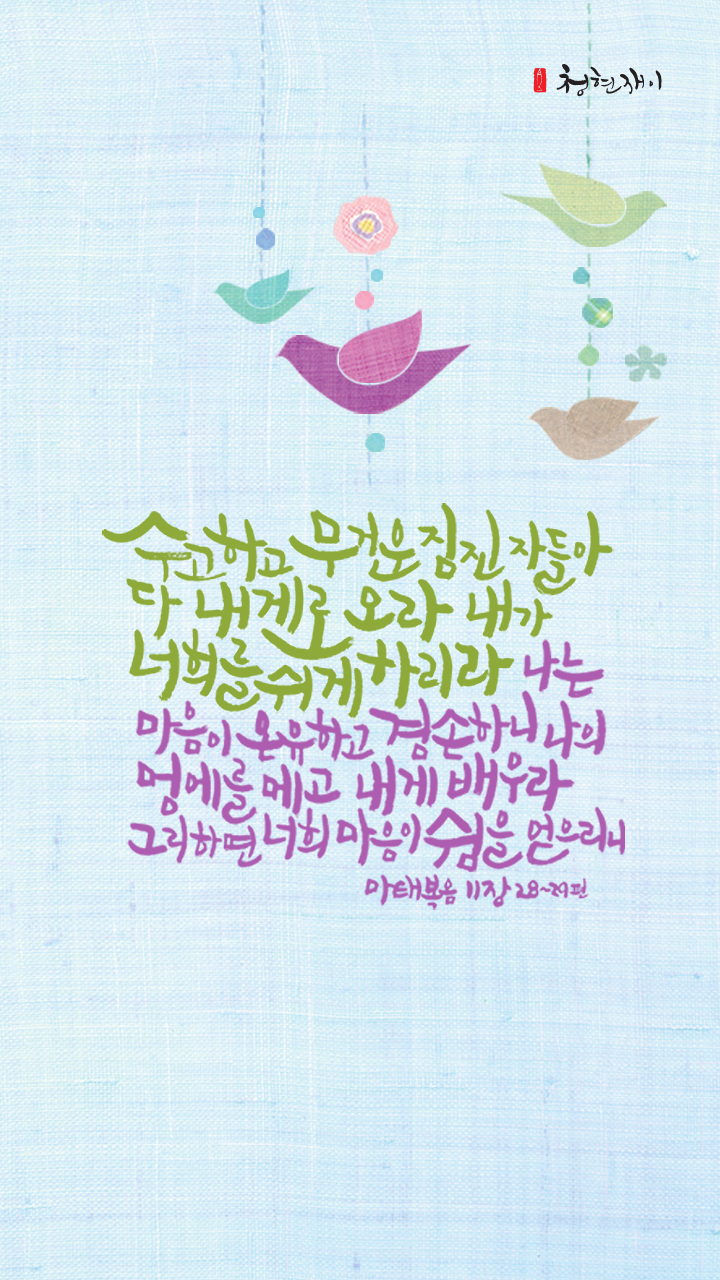 청현재이
수고하고 무거운 짐진 자들아
다 내게로 오라 내가
너희를 쉬게 하리라 나는
마음이 온유하고 겸손하니 나의
멍에를 메고 내게 배우라
그리하면 너희 마음이 쉼을 얻으리니
마태복음 11장 28~29편